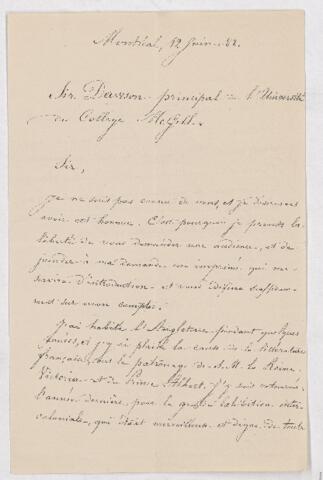 Montréal, 12 Juin
Sir Dawson principal de l'Université
du College McGill.
Sir,
Je ne suis pas connu de vous, et je désirerais
avoir cet honneur. C'est pourquoi je prends la
liberté de vous demander une audience, et de
joindre à ma demande un imprimé qui me
servira d'introduction et vous édifiera
sur mon compte.
J'ai habité l'Angleterre pendant quelques
années, et j'y ai plaidé la cause de la littérature
française, sous le patronage de S. M. la Reine
Victoria et du Prince Albert. J'y suis retourné
l'année dernière, pour la grande Exhibition inter-
coloniale, qui était merveilleuse et digne de toute